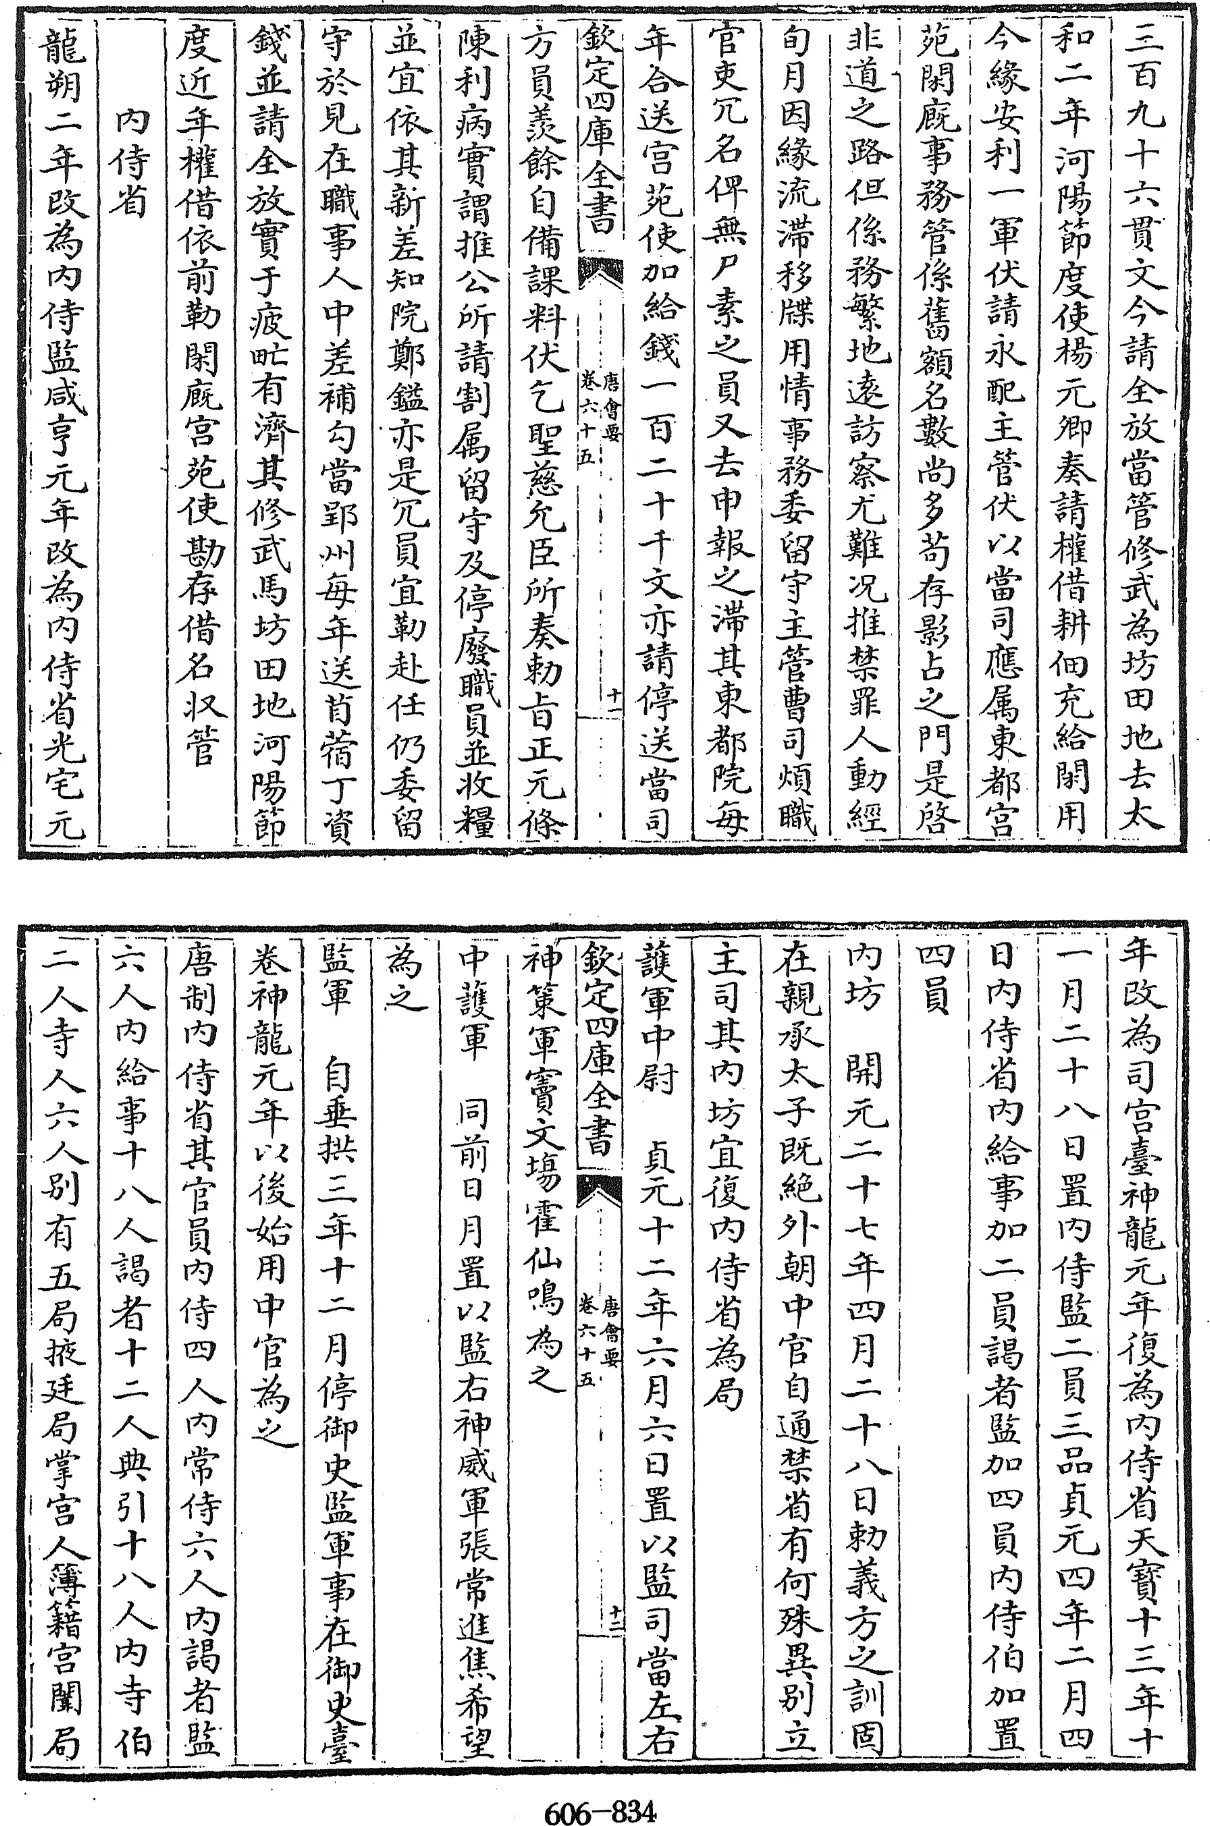 三百九十六貫文今請全放當管修武為坊田地去太
和二年河陽節度使楊元卿奏請權借耕佃充給閑用
今緣安利一軍伏請永配主管伏以當司應属東都宫
苑閑廐事務管係舊額名數尚多苟存影占之門是啓
非道之路但係務繁地遠訪察尤難况推禁罪人動經
旬月因緣流滯移牒用情事務委留守主管曹司煩職
官吏冗名俾無尸素之員又去申報之滯其東都院每
年合送宫苑使加給錢一百二十千文亦請停送當司
欽定四庫全書
唐會要
卷六十五
十一
方員羨餘自備課料伏乞聖慈允臣所奏勅旨正元條
陳利病實謂推公所請割属留守及停廢職員並收糧
並宜依其新差知院鄭鎰亦是冗員宜勒赴任仍委留
守於見在職事人中差補勾當郢州每年送苜蓿丁資
錢並請全放實于疲甿有濟其修武馬坊田地河陽節
度近年權借依前勒閑廐宫苑使勘存借名収管
内侍省
龍朔二年改為内侍監咸亨元年改為内侍省光宅元
年改為司宫臺神龍元年復為内侍省天寳十三年十
一月二十八日置内侍監二員三品貞元四年二月四
日内侍省内給事加二員謁者監加四員内侍伯加置
四員
内坊　開元二十七年四月二十八日勅義方之訓固
在親承太子既絶外朝中官自通禁省有何殊異别立
主司其内坊宜復内侍省為局
護軍中尉　貞元十二年六月六日置以監司當左右
欽定四庫全書
唐會要
卷六十五
十二
神策軍竇文塲霍仙鳴為之
中護軍　同前日月置以監右神威軍張常進焦希望
為之
監軍　自垂拱三年十二月停御史監軍事在御史臺
卷神龍元年以後始用中官為之
唐制内侍省其官員内侍四人内常侍六人内謁者監
六人内給事十八人謁者十二人典引十八人内寺伯
二人寺人六人别有五局掖廷局掌宫人簿籍宫闈局
606-834